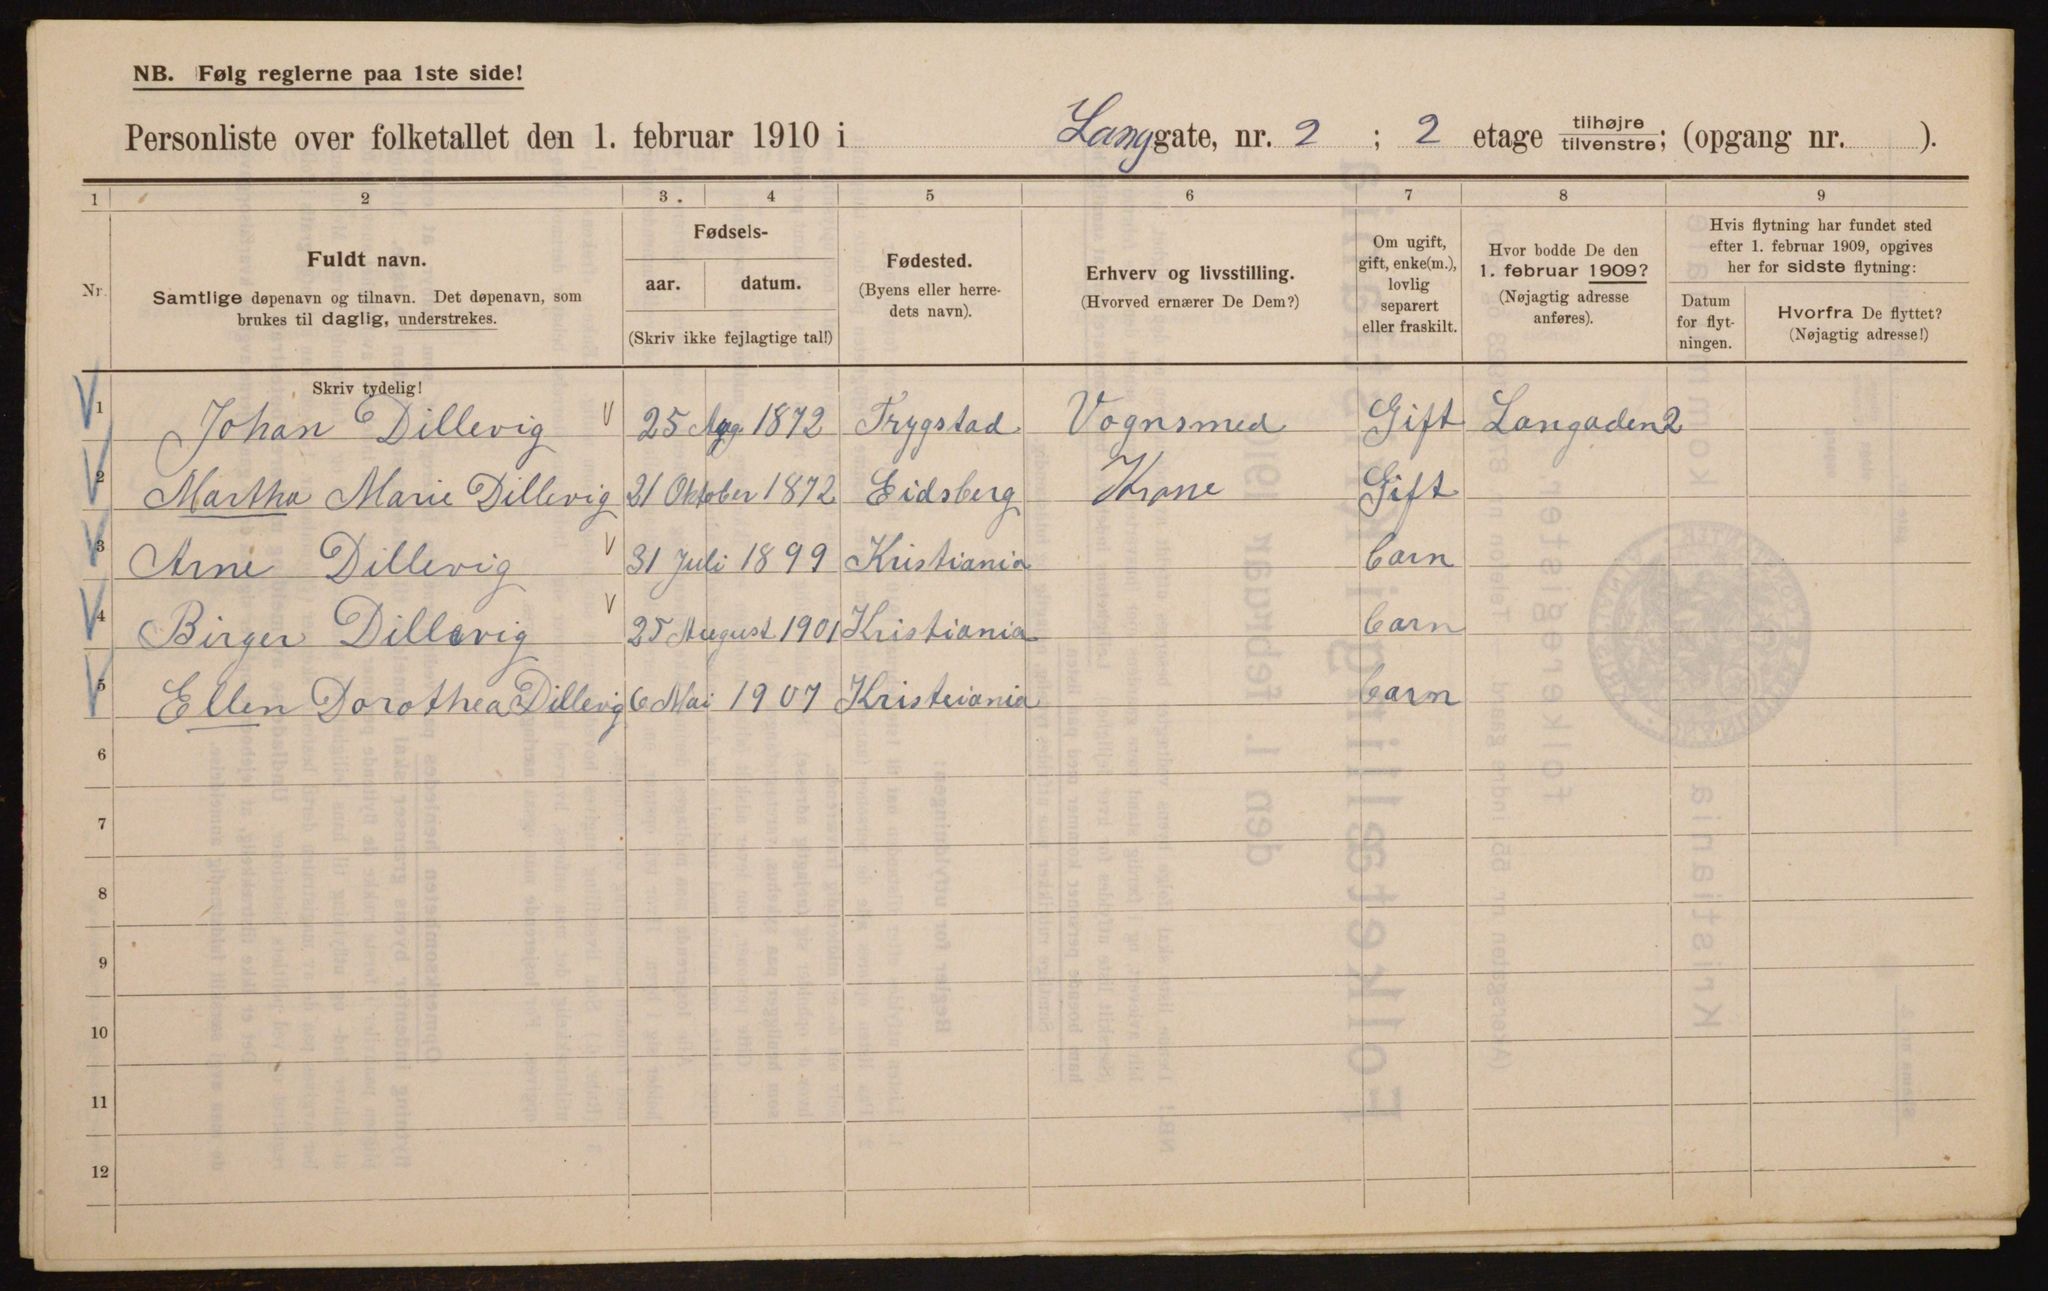 NB. Følg reglerne paa 1ste side!
Personliste over folketallet den 1. februar 1910 i Langgate, nr. 2 ; 2 etage tilhøjre tilvenstre; (opgang nr. ).
1 2 3. 4 5 6 7 8 9
Nr.
Fuldt navn.
Samtlige døpenavn og tilnavn. Det døpenavn, som
brukes til daglig, understrekes.
Skriv tydelig!
Fødsels-
aar. datum.
(Skriv ikke fejlagtige tal!)
Fødested.
(Byens eller herre-
dets navn).
Erhverv og livsstilling.
(Hvorved ernærer De Dem?)
Om ugift,
gift, enke(m.),
lovlig
separert
eller fraskilt.
Hvor bodde De den
1. februar 1909?
(Nøjagtig adresse
anføres).
Hvis flytning har fundet sted
efter 1. februar 1909, opgives
her for sidste flytning:
Datum
for flyt-
ningen.
Hvorfra De flyttet?
(Nøjagtig adresse!)
1 Johan Dillevig 25 Aug 1872 Trygstad Vognsmed Gift Langaden 2
2 Martha Marie Dillevig 21 Oktober 1872 Eidsberg Kone Gift
3 Arne Dillevig 31 Juli 1899 Kristiania barn
4 Birger Dillevig 25 August 1901 Kristiania barn
5 Ellen Dorothea Dillevig 6 Mai 1907 Kristeiania barn
6
7
8
9
10
11
12